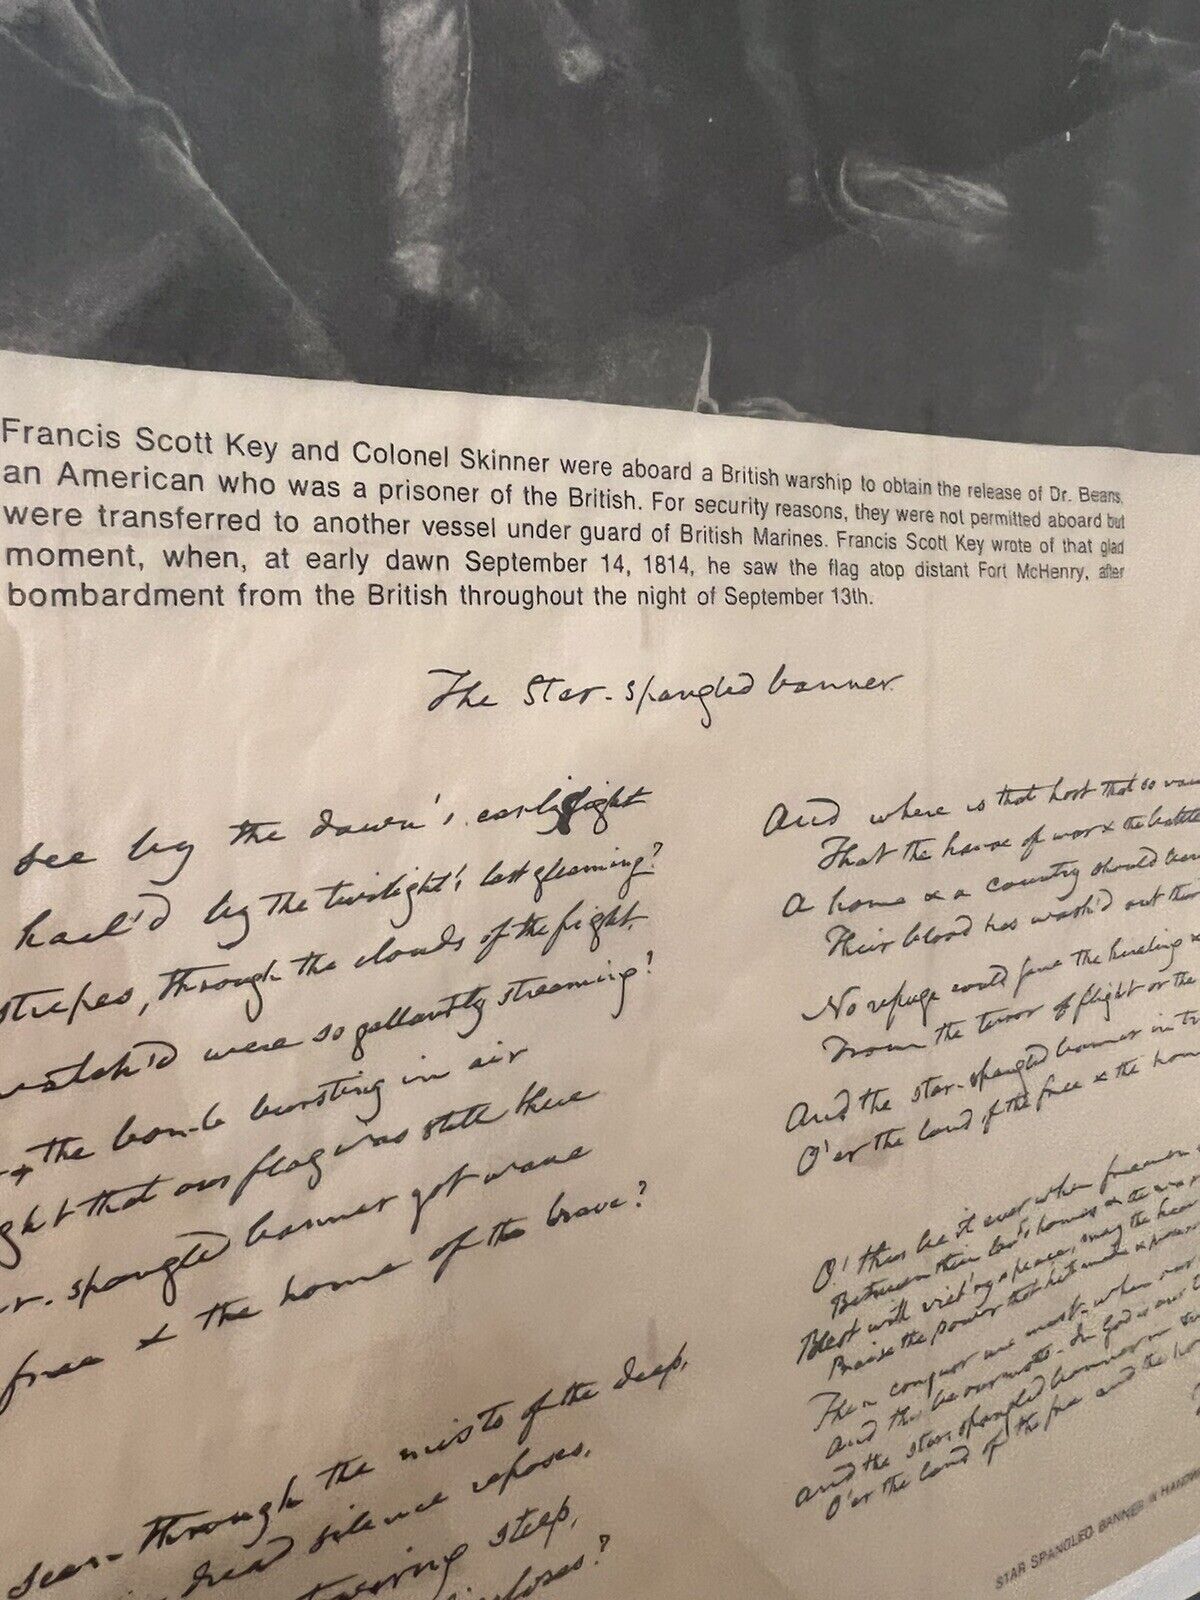 Francis Scott Key and Colonel Skinner were aboard a British warship to obtain the release of Dr. Beans,
an American who was a prisoner of the British. For security reasons, they were not permitted aboard but
were transferred to another vessel under guard of British Marines. Francis Scott Key wrote of that glad
moment, when, at early dawn September 14, 1814, he saw the flag atop distant Fort McHenry, after
bombardment from the British throughout the night of September 13th.
The Star-spangled banner
see by the dawn's early light
hail'd by the twilight's last gleaming?
stripes, through the clouds of the fight,
watch'd were so gallantly streaming?
+ the bomb bursting in air
that our flag was still there
spangled banner yet wave
free & the home of the brave?
seen through the mists of the deep,
dread silence reposes,
steep,
And where is that host that so
That the havoc of war & the battle
A home & a country should
Their blood has wash'd out
No refuge could save the hireling
From the terror of flight or the
And the star-spangled banner in
O'er the land of the free & the
O! thus be it ever when freemen
Between their lov'd homes & the war
Blest with vict'ry & peace, may the
Praise the power that hath made &
Then conquer we must, when
And this be our motto - In God is our
And the star-spangled banner in
O'er the land of the free and the
STAR SPANGLED BANNER IN